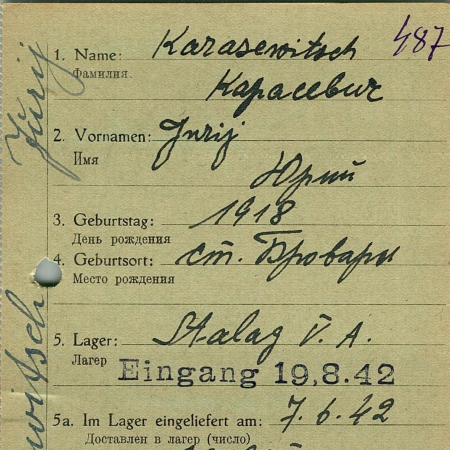 487
1. Name: Karasewitsch
Фамилия
Карасевич
2. Vornamen: Jurij
Имя
Юрий
3. Geburtstag: 1918
День рождения
4. Geburtsort: ст. Бровары
Место рождения
5. Lager: Stalag V. A.
Лагер
Eingang 19.8.42
5a. Im Lager eingeliefert am: 7.6.42
Доставлен в лагер (число)
Jurij
witsch